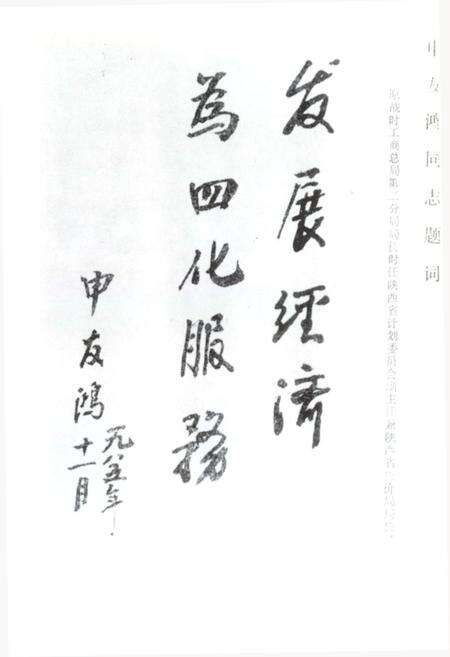 申友鸿同志题词
原战时工商总局第二分局局长时任陕西省计划委员会副主任兼陕西省物价局局长
发展经济
為四化服務
申友鴻
一九八五年
十一月